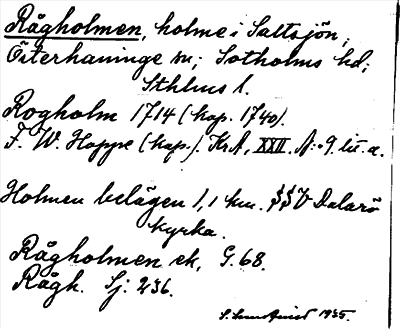 Rågholmen, holme i Saltsjön,
Österhaninge sn; Sotholms hd;
Sthlms l.
Rogholm 1714 (kop. 1740).
F. W. Hoppe (kop.). KrA, XXII. A:9. lit. a.
Holmen belägen 1,1 km. SSV Dalarö
kyrka.
Rågholmen ek. G. 68.
Rågh. Sj: 236.
1935